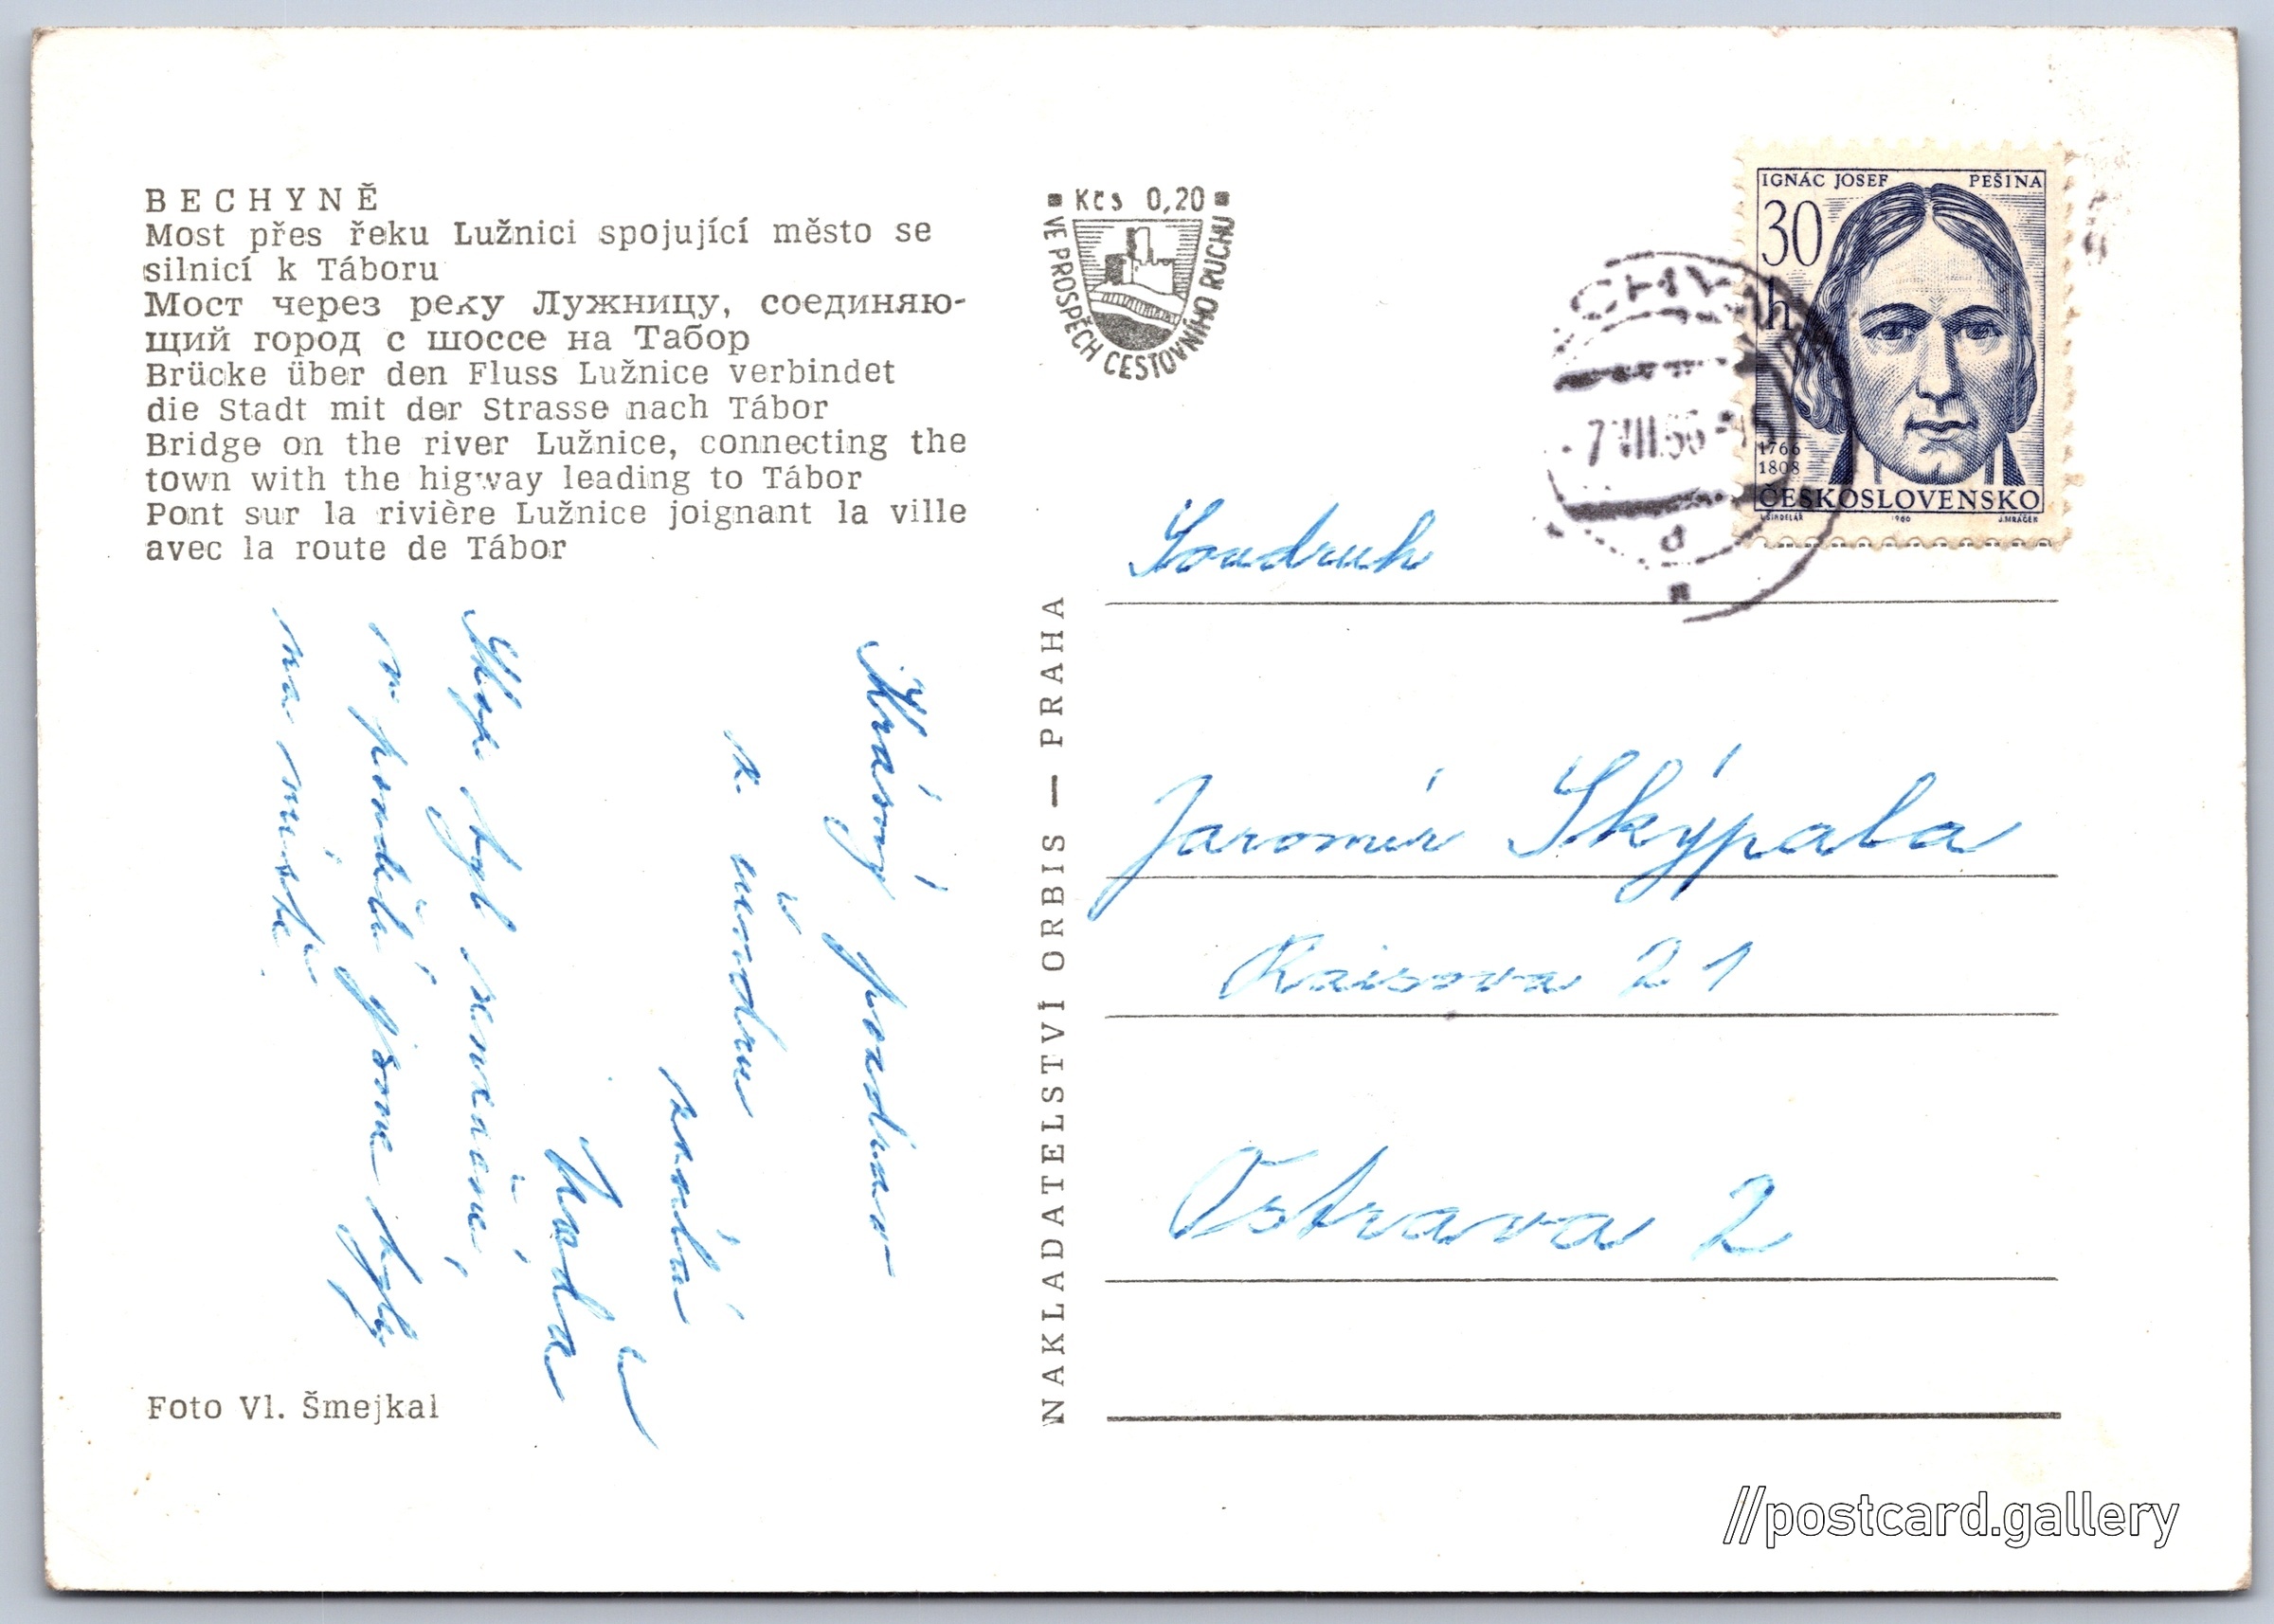 BECHYNĚ
Most přes řeku Lužnici spojující město se
silnicí k Táboru
Мост через реку Лужницу, соединяю-
щий город с шоссе на Табор
Brücke über den Fluss Lužnice verbindet
die Stadt mit der Strasse nach Tábor
Bridge on the river Lužnice, connecting the
town with the higway leading to Tábor
Pont sur la rivière Lužnice joignant la ville
avec la route de Tábor
Krásný pozdrav
z
zasílá
Skok byl
v pondělí jsme byly
na místě.
Foto Vl. Šmejkal
NAKLADATELSTVÍ ORBIS — PRAHA
Kčs 0,20
VE PROSPĚCH CESTOVNÍHO RUCHU
IGNÁC JOSEF PEŠINA
30
h
1766
1808
ČESKOSLOVENSKO
L. ŠINDELÁŘ 1966 J. MRÁČEK
Soudruh
Jaromír Skýpala
Raisova 21
Ostrava 2
//postcard.gallery